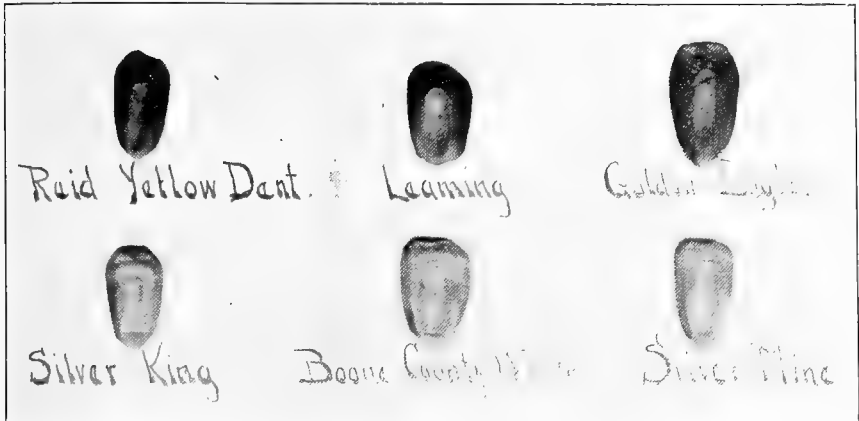 Reid Yellow Dent. Leaming Golden
Silver King Boone County Silver Mine